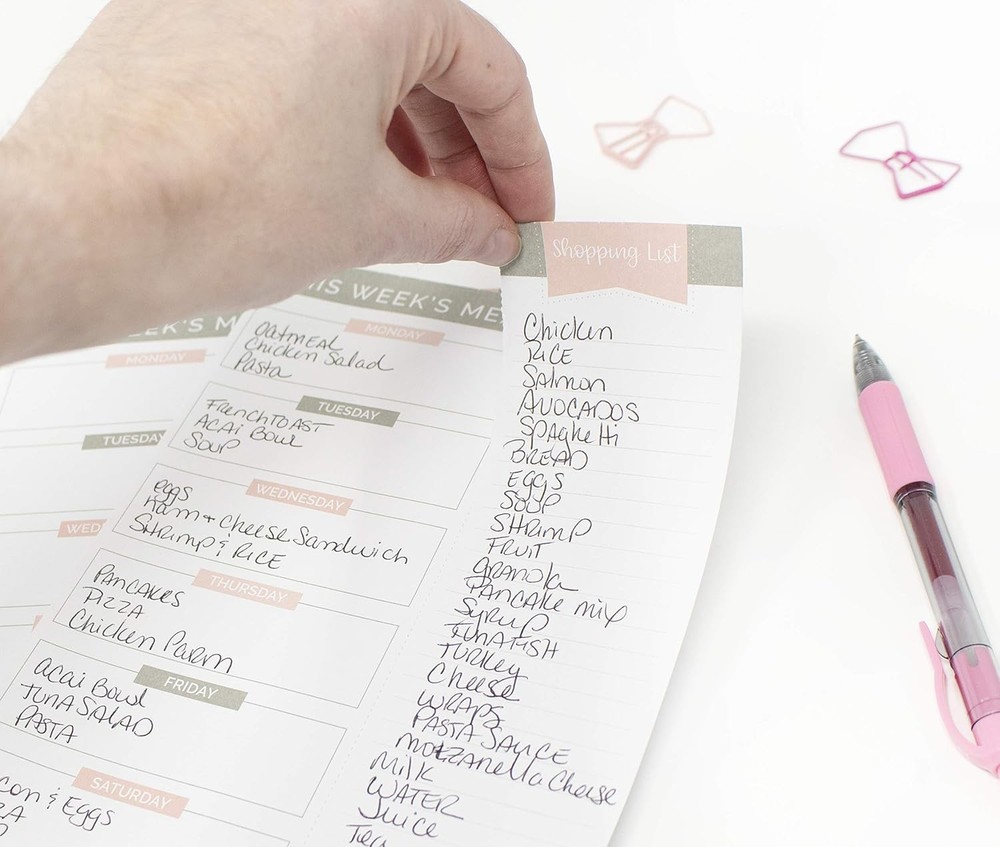 EEK'S M
MONDAY
TUESDAY
WED
IS WEEK'S ME
MONDAY
OATMEAL
Chicken Salad
Pasta
TUESDAY
FRENCH TOAST
ACAI BOWL
SOUP
WEDNESDAY
eggs
Ham + Cheese Sandwich
SHRIMP & RICE
THURSDAY
PANCAKES
PIZZA
Chicken Parm
FRIDAY
ACAI Bowl
TUNA SALAD
PASTA
SATURDAY
con & Eggs
ZA
Shopping List
Chicken
RICE
Salmon
AVOCADOS
SPAgheTTi
BREAD
EGGS
SOUP
SHRIMP
FRUIT
granola
PANCAKE MIX
SYRUP
TUNAFISH
TURKEY
Cheese
WRAPS
PASTA SAUCE
MOZZANELLA Cheese
Milk
WATER
Juice
Tea